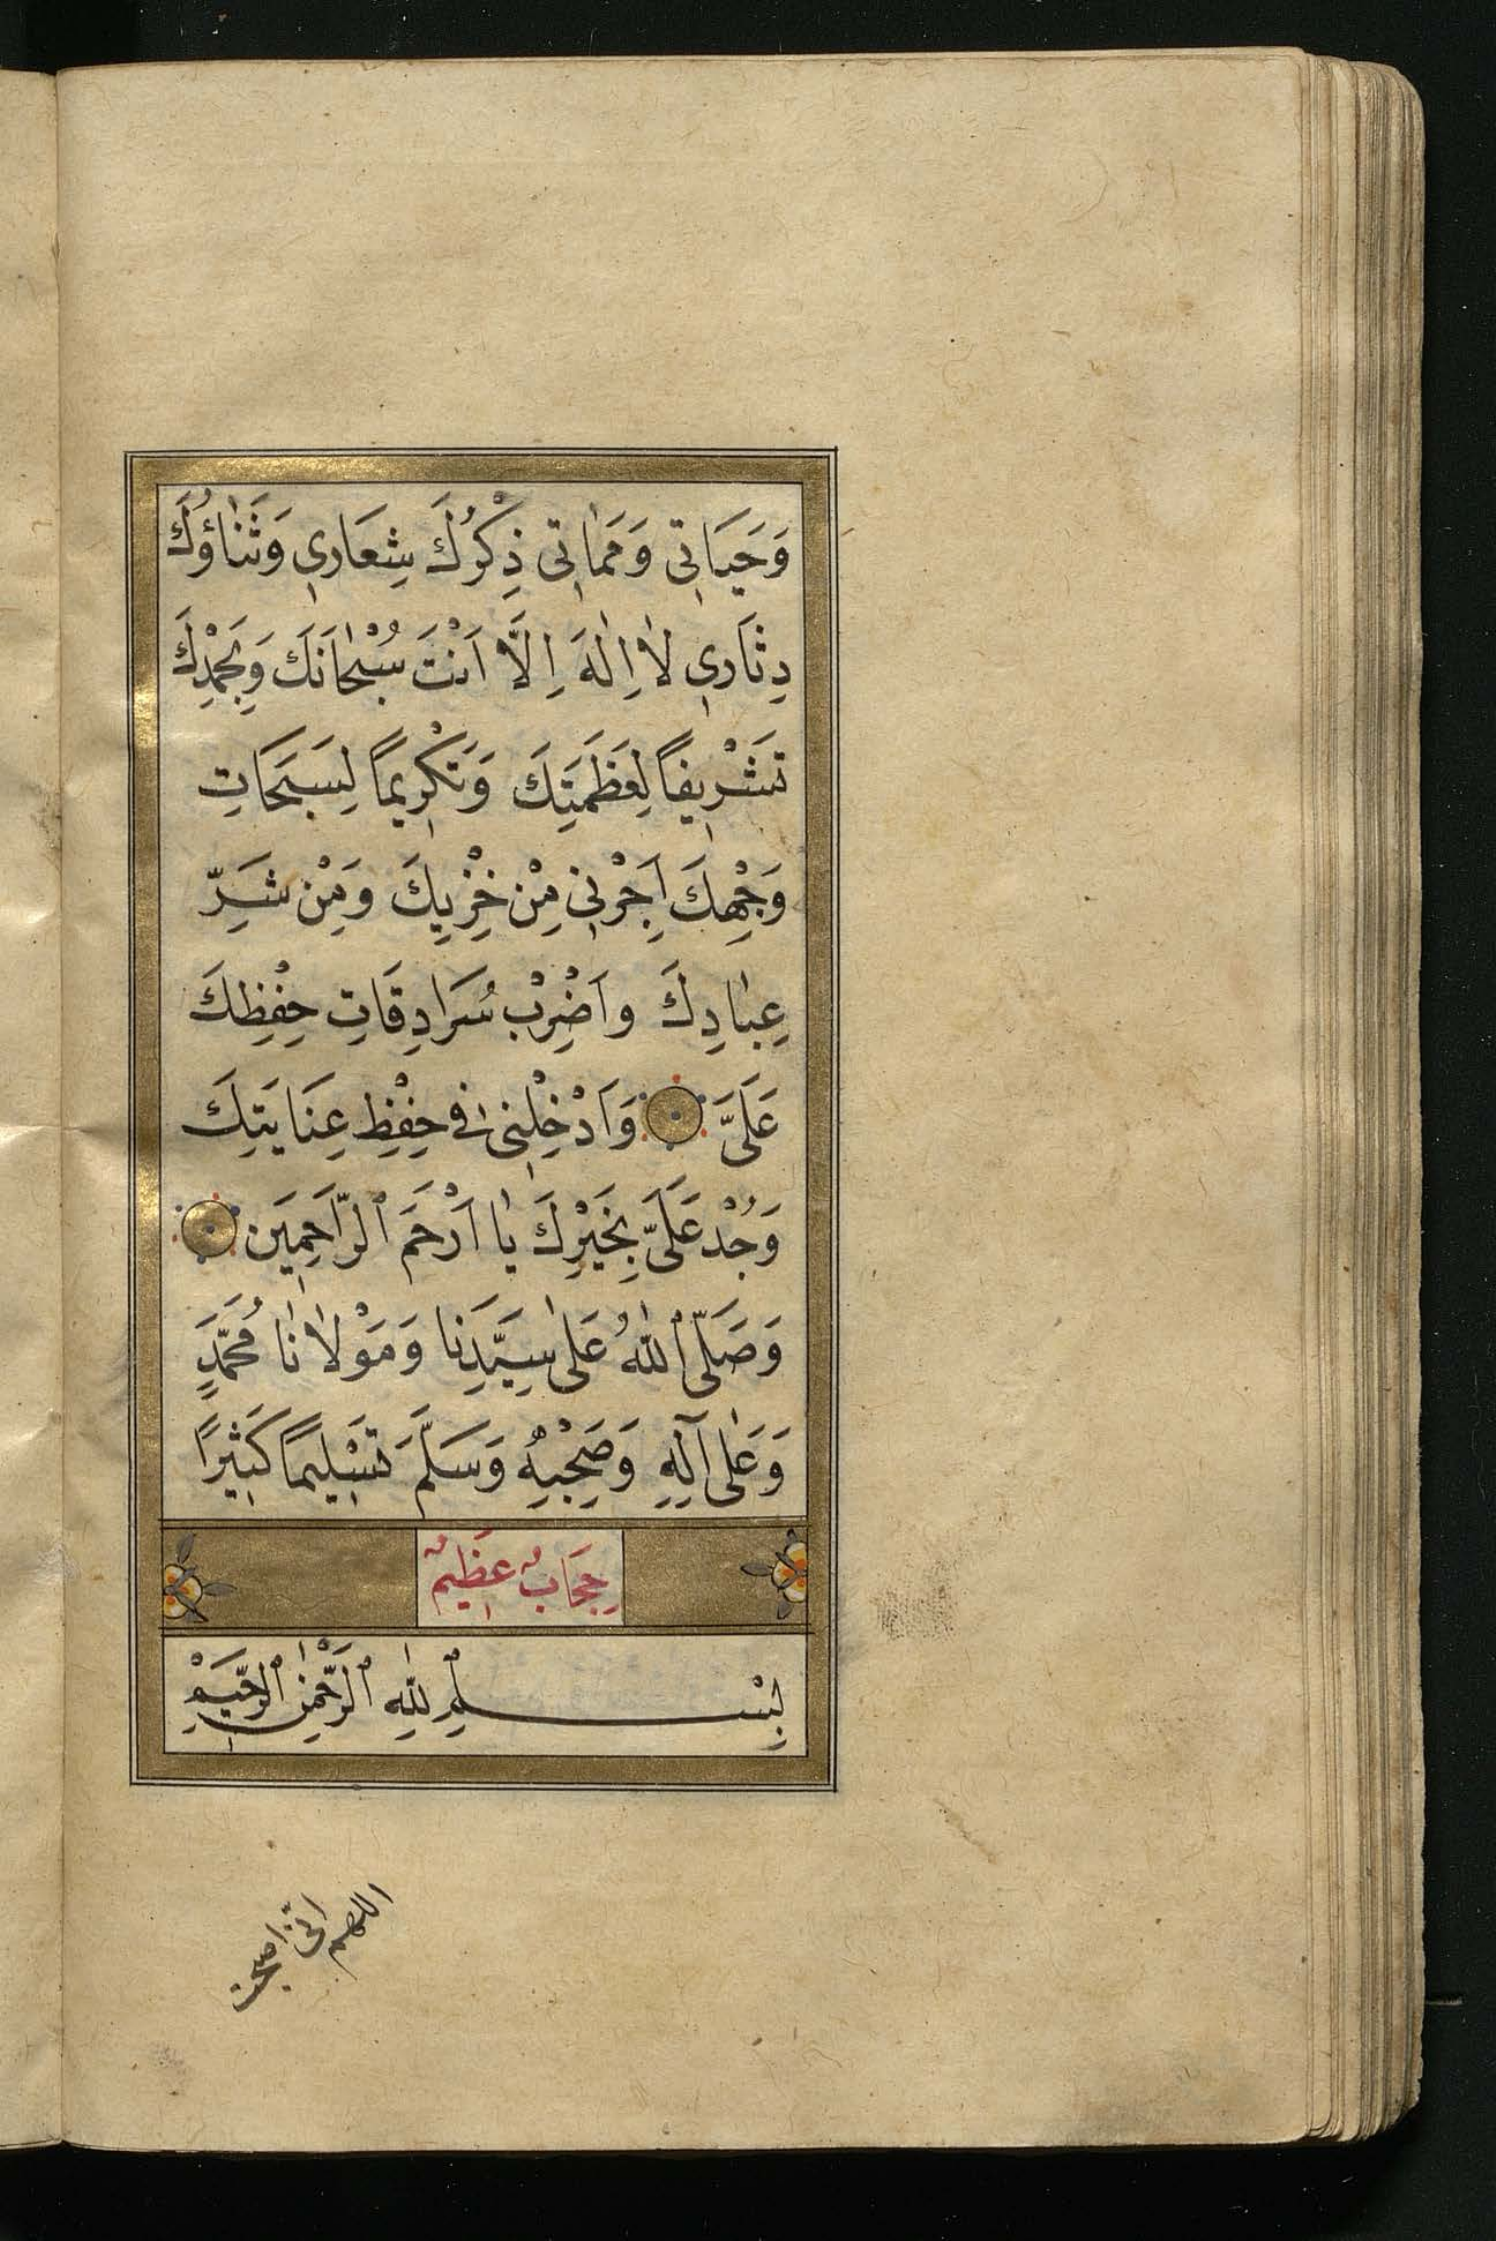 وَحَيَاتِي وَمَمَاتِي ذِكْرُكَ شِعَارِي وَثَنَاؤُكَ
دِثَارِي لَا اِلٰهَ اِلَّا اَنْتَ سُبْحَانَكَ وَبِحَمْدِكَ
تَشْرِيفًا لِعَظَمَتِكَ وَتَكْرِيمًا لِسَبَحَاتِ
وَجْهِكَ اَجِرْنِي مِنْ خِزْيِكَ وَمِنْ شَرِّ
عِبَادِكَ واَضْرِبْ سُرَادِقَاتِ حِفْظِكَ
عَلَيَّ وَاَدْخِلْنِي فِي حِفْظِ عِنَايَتِكَ
وَجُدْ عَلَيَّ بِخَيْرِكَ يَا اَرْحَمَ الرَّاحِمِيَن
وَصَلَّى اللّٰهُ عَلٰى سَيِّدِنَا وَمَوْلَانَا مُحَمَّدٍ
وَعَلٰى آلِهِ وَصَحْبِهِ وَسَلَّمَ تَسْلِيمًا كَثِيرًا
حِجَابٌ عَظِيمٌ
بِسْمِ اللّٰهِ الرَّحْمٰنِ الرَّحِيمِ
اللهم انى اصبحت